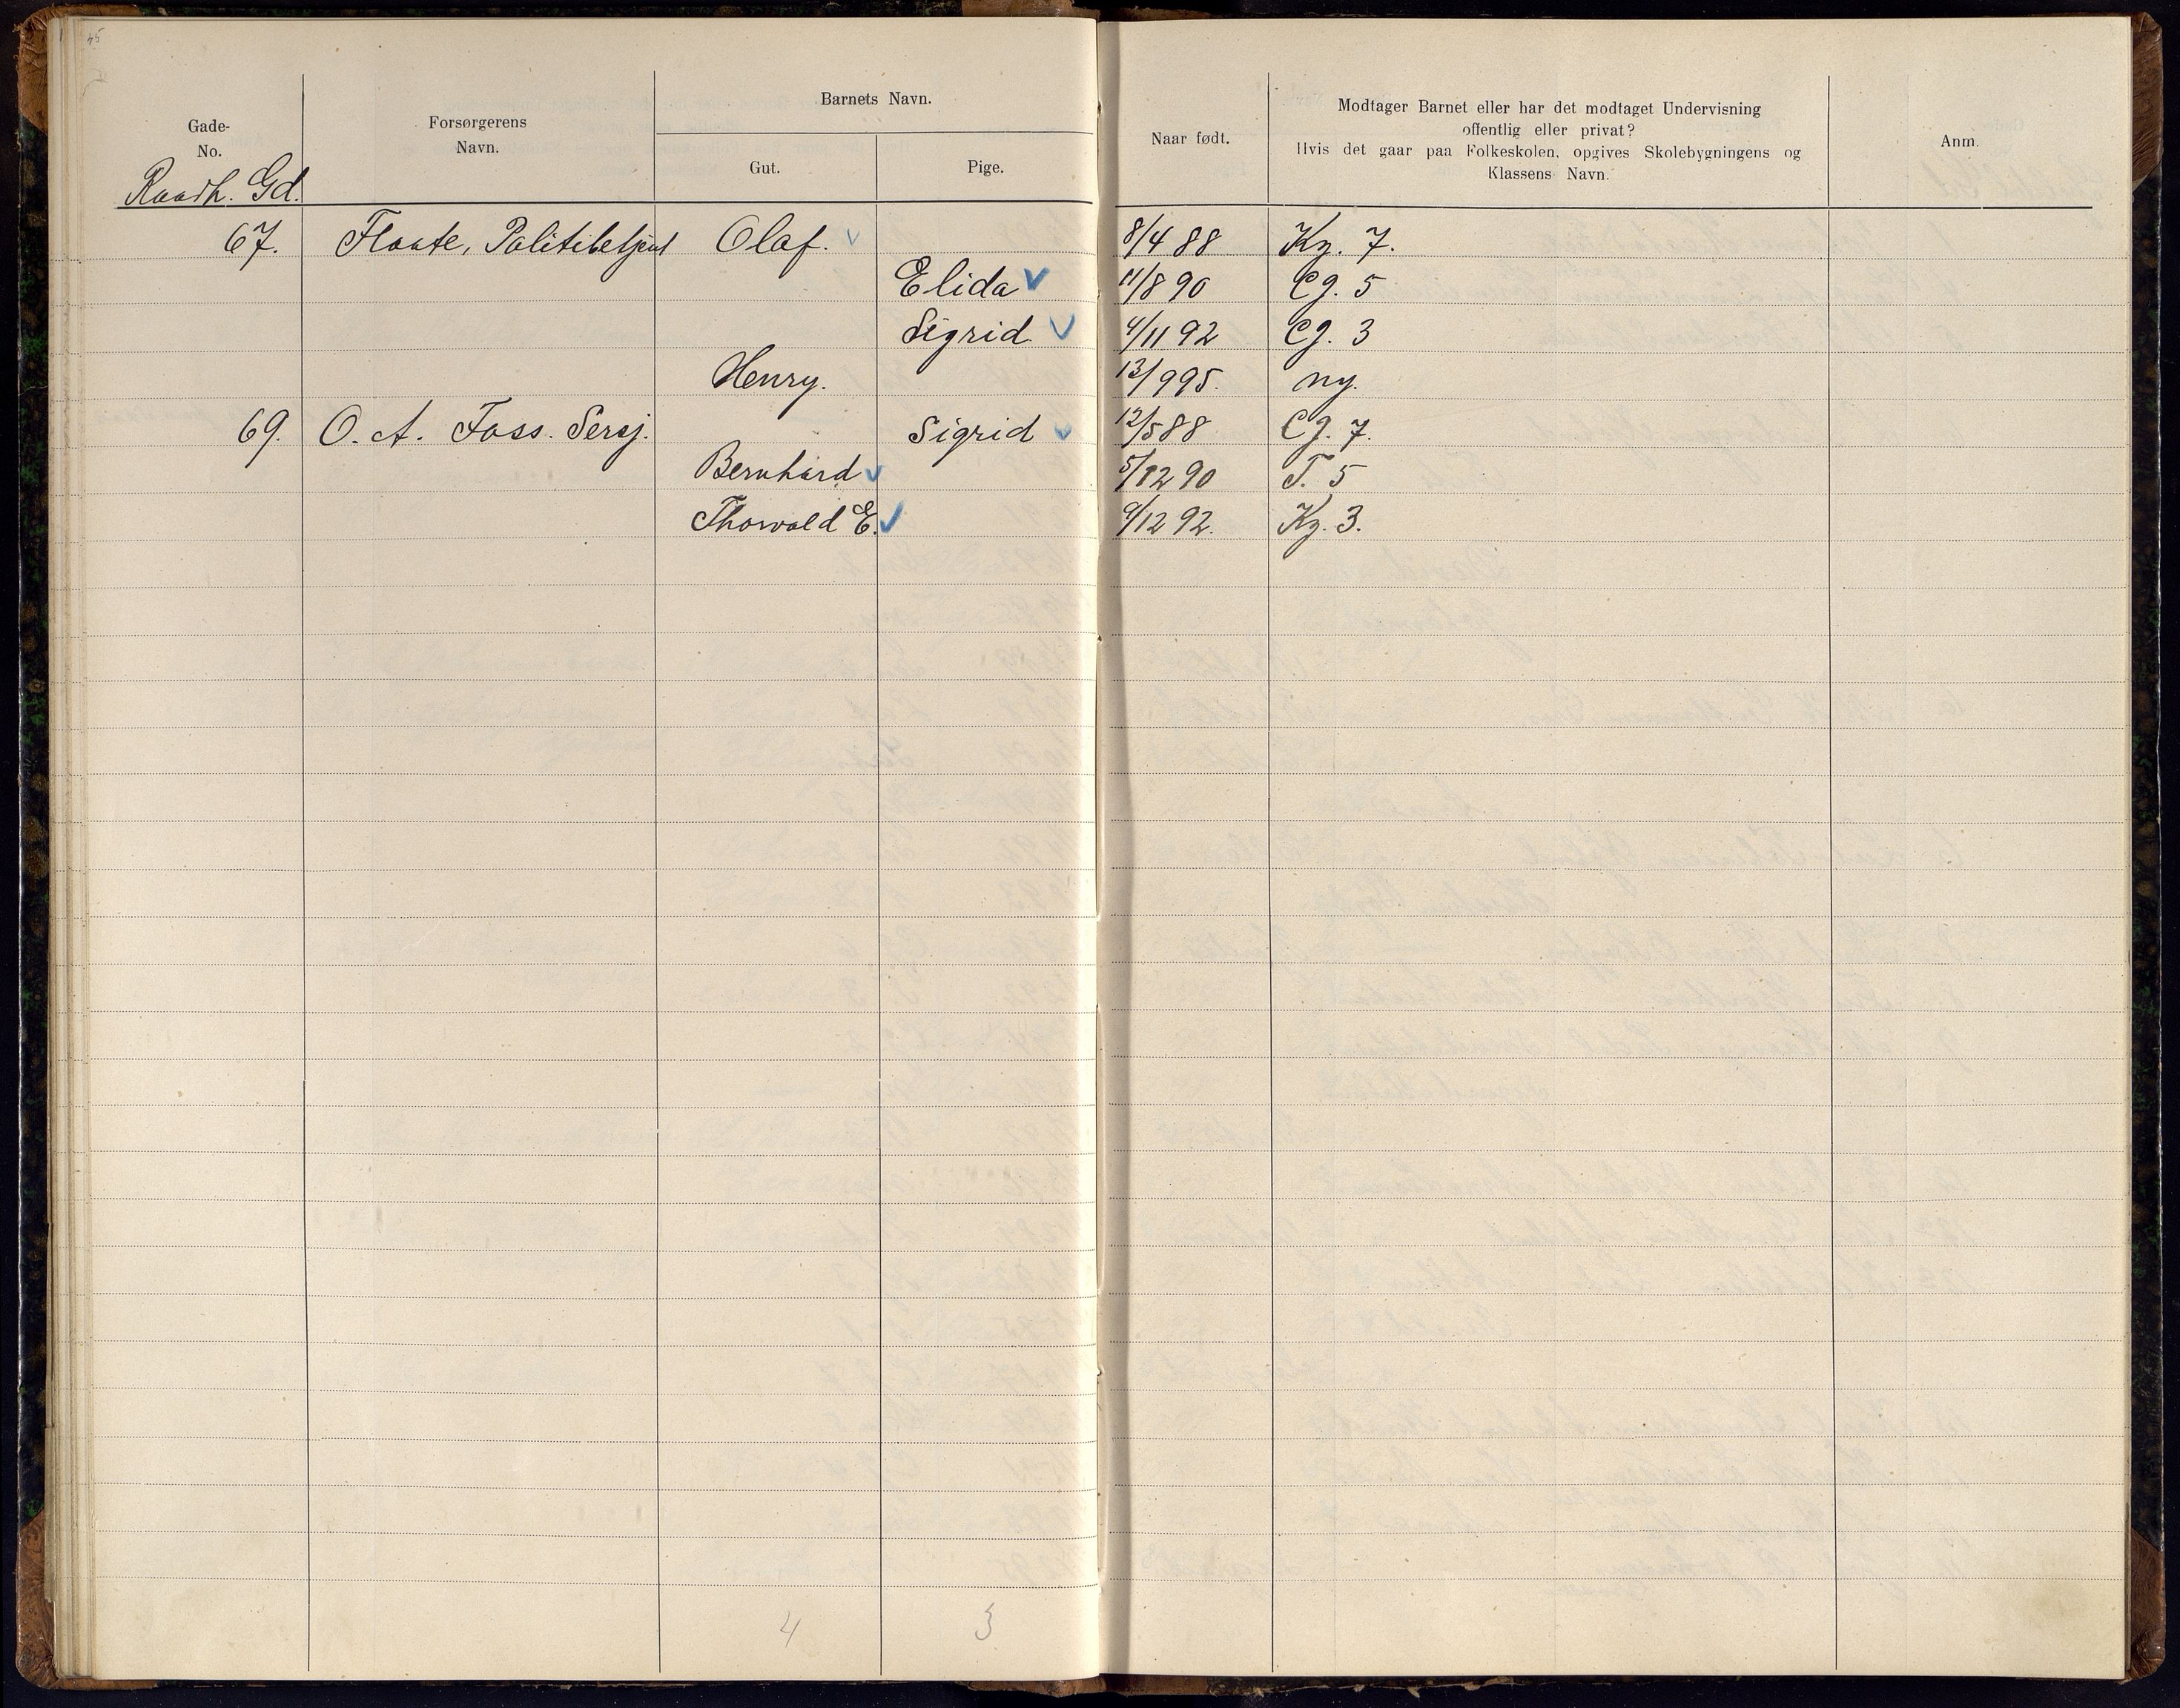 45
Gade-
No.
Forsørgerens
Navn.
Barnets Navn.
Gut.
Pige.
Naar født.
Modtager Barnet eller har det modtaget Undervisning
offentlig eller privat?
Hvis det gaar paa Folkeskolen, opgives Skolebygningens og
Klassens Navn.
Anm.
Raadh. Gd.
67. Flaate, Politibetjent Olaf. 8/4 88 Kg. 7.
Elida 11/8 90 Cg. 5
Sigrid 4/11 92 Cg. 3
Henry. 13/9 95. ny.
69. O. A. Foss. Sersj. Sigrid 12/5 88 Cg. 7.
Bernhard 5/12 90 T. 5
Thorvald E. 9/12 92. Kg. 3.
4 3